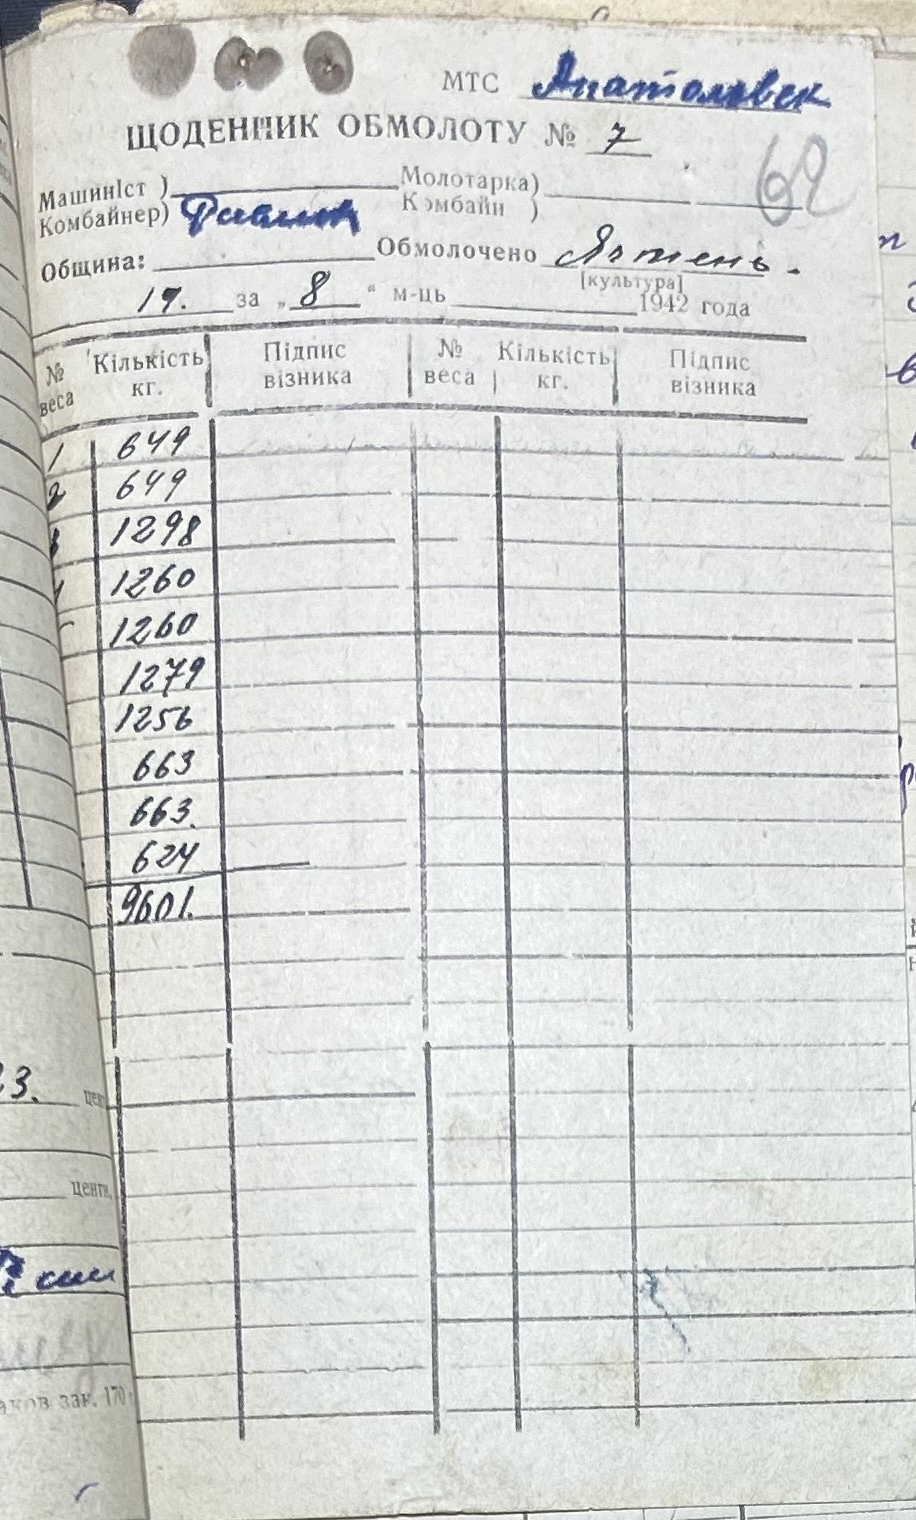 МТС Анатоловск
ЩОДЕННИК ОБМОЛОТУ № 7
62
Машиніст ) Молотарка)
Комбайнер) Комбайн )
Община: Обмолочено Ячмень.
[культура]
19. за „8“ м-ць 1942 года
№ веса Кількість кг. Підпис візника № веса Кількість кг. Підпис візника
1 649
2 649
3 1298
4 1260
5 1260
1279
1256
663
663.
624
9601.
23. цен
центн.
зак. 170